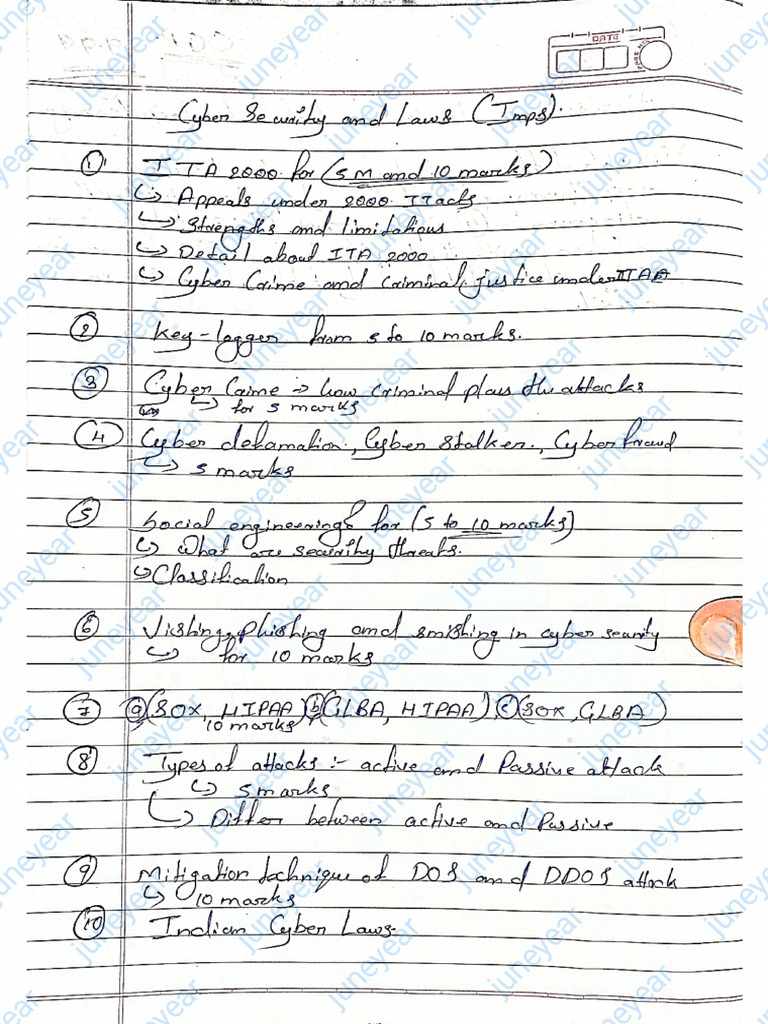 DATE
Cyber Security and Laws (Imps).
① ITA 2000 for (5 M and 10 marks)
↳ Appeals under 2000 ITacts
↳ Strengths and limitations
↳ Detail about ITA 2000
↳ Cyber Crime and criminal justice under ITAA
② key-logger from 5 to 10 marks.
③ Cyber Crime → how criminal plans the attacks
↳ for 5 marks
④ Cyber defamation, Cyber Stalker, Cyber fraud
↳ 5 marks
⑤ Social engineering for (5 to 10 marks)
↳ What are security threats.
↳ Classification
⑥ Vishing, phishing and smishing in cyber security
↳ for 10 marks
⑦ ⓐ(SOX, HIPAA) ⓑ(GLBA, HIPAA) ⓒ(SOX, GLBA)
10 marks
⑧ Types of attacks :- active and Passive attack
↳ 5 marks
↳ Differ between active and Passive
⑨ Mitigation technique of DOS and DDOS attack
↳ 10 marks
⑩ Indian Cyber Laws.
juneyear